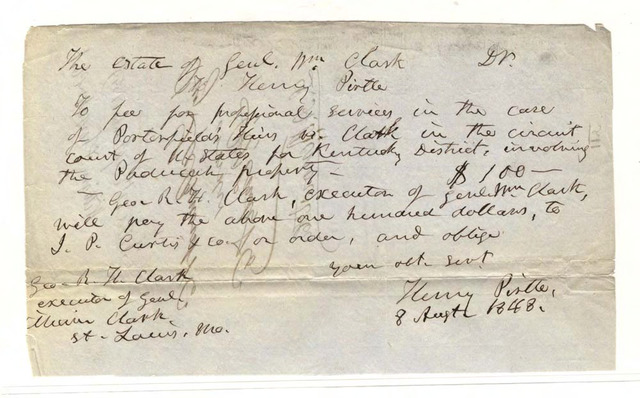 The estate of Genl. Wm Clark Dr.
To Henry Pirtle
To fee for professional services in the case
of Porterfield's Heirs vs. Clark in the circuit
court of U States for Kentucky District, involving
the Paducah property — $100 —
— Geo R. H. Clark, executor of Genl Wm Clark,
will pay the above one hundred dollars, to
J. P. Curtis & co. or order, and oblige
your obt. servt.
Henry Pirtle,
8 Augt 1848.
Geo R. H. Clark
executor of Genl.
Clark.
St. Louis, Mo.